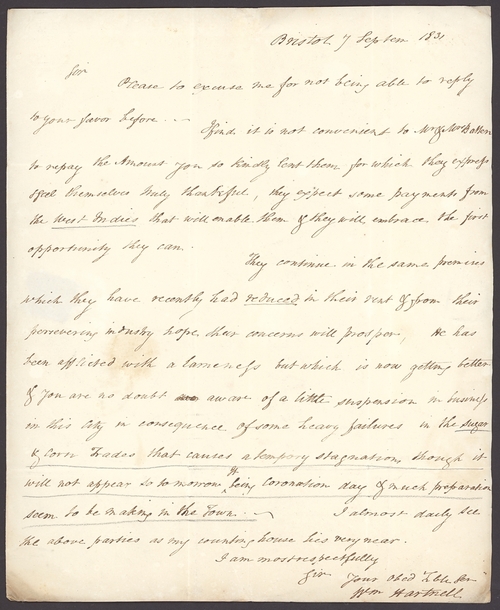 Bristol 7 Septem 1831
Sir
Please to excuse me for not being able to reply
to your favor before. I find it is not convenient to Mr & Mrs Batten
to repay the Amount you so kindly lent them for which they express
& feel themselves truly thankful, they expect some payments from
the West Indies that will enable them & they will embrace the first
opportunity they can.
They continue in the same premises
which they have recently had reduced in their rent & from their
persevering industry hope their concerns will prosper, He has
been afflicted with a lameness but which is now getting better
& you are no doubt aware of a little suspension in business
in this City in consequence of some heavy failures in the sugar
& corn Trades that causes a tempory stagnation, though it
will not appear so to morrow it being Coronation day & much preparation
seem to be making in the Town. I almost daily see
the above parties as my counting house lies very near.
I am most respectfully
Sir Your Obed Ble Ser
Wm Hartnell